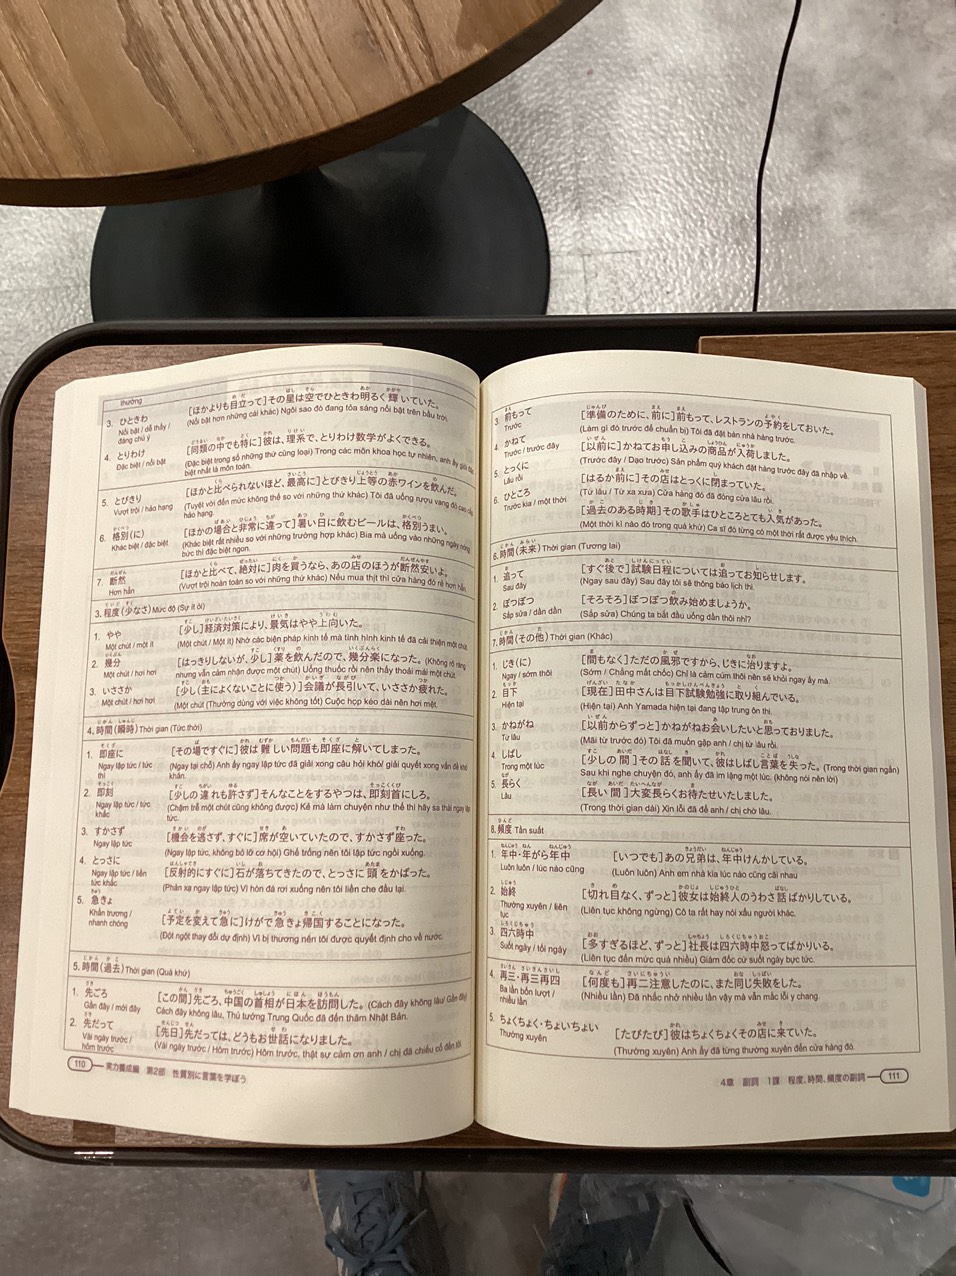 thường
3. ひときわ [ほかよりも目立って]その星は空でひときわ明るく輝いていた。
Nổi bật / dễ thấy / đáng chú ý (Nổi bật hơn những cái khác) Ngôi sao đó đang tỏa sáng nổi bật trên bầu trời.
4. とりわけ [同類の中でも特に]彼は、理系で、とりわけ数学がよくできる。
Đặc biệt / nổi bật (Đặc biệt trong số những thứ cùng loại) Trong các môn khoa học tự nhiên, anh ấy giỏi đặc
biệt nhất là môn toán.
5. とびきり [ほかと比べられないほど、最高に]とびきり上等の赤ワインを飲んだ。
Vượt trội / hảo hạng (Tuyệt vời đến mức không thể so với những thứ khác) Tôi đã uống rượu vang đỏ cao cấp
hảo hạng.
6. 格別(に) [ほかの場合と非常に違って]暑い日に飲むビールは、格別うまい。
Khác biệt / đặc biệt (Khác biệt rất nhiều so với những trường hợp khác) Bia mà uống vào những ngày nóng
bức thì đặc biệt ngon.
7. 断然 [ほかと比べて、絶対に]肉を買うなら、あの店のほうが断然安いよ。
Hơn hẳn (Vượt trội hoàn toàn so với những thứ khác) Nếu mua thịt thì cửa hàng đó rẻ hơn hẳn
3. 程度(少なさ) Mức độ (Sự ít ỏi)
1. やや [少し]経済対策により、景気はやや上向いた。
Một chút / một ít (Một chút / Một ít) Nhờ các biện pháp kinh tế mà tình hình kinh tế đã cải thiện một chút.
2. 幾分 [はっきりしないが、少し]薬を飲んだので、幾分楽になった。(Không rõ ràng
Một chút / hơi hơi nhưng vẫn cảm nhận được một chút) Uống thuốc rồi nên thấy thoải mái một chút.
3. いささか [少し(主によくないことに使う)]会議が長引いて、いささか疲れた。
Một chút / hơi hơi (Một chút (Thường dùng với việc không tốt) Cuộc họp kéo dài nên hơi mệt.
4. 時間(瞬時) Thời gian (Tức thời)
1. 即座に [その場ですぐに]彼は難しい問題も即座に解いてしまった。
Ngay lập tức / tức thì (Ngay tại chỗ) Anh ấy ngay lập tức đã giải xong câu hỏi khó/ giải quyết xong vấn đề khó
khăn.
2. 即刻 [少しの遅れも許さず]そんなことをするやつは、即刻首にしろ。
Ngay lập tức / tức khắc (Chậm trễ một chút cũng không được) Kẻ mà làm chuyện như thế thì hãy sa thải ngay lập
tức.
3. すかさず [機会を逃さず、すぐに]席が空いていたので、すかさず座った。
Ngay lập tức (Ngay lập tức, không bỏ lỡ cơ hội) Ghế trống nên tôi lập tức ngồi xuống.
4. とっさに [反射的にすぐに]石が落ちてきたので、とっさに頭をかばった。
Ngay lập tức / liền tức khắc (Phản xạ ngay lập tức) Vì hòn đá rơi xuống nên tôi liền che đầu lại.
5. 急きょ [予定を変えて急に]けがで急きょ帰国することになった。
Khẩn trương / nhanh chóng (Đột ngột thay đổi dự định) Vì bị thương nên tôi được quyết định cho về nước.
5. 時間(過去) Thời gian (Quá khứ)
1. 先ごろ [この間]先ごろ、中国の首相が日本を訪問した。(Cách đây không lâu/ Gần đây)
Gần đây / mới đây Cách đây không lâu, Thủ tướng Trung Quốc đã đến thăm Nhật Bản.
2. 先だって [先日]先だっては、どうもお世話になりました。
Vài ngày trước / hôm trước (Vài ngày trước / Hôm trước) Hôm trước, thật sự cảm ơn anh / chị đã chiếu cố đến tôi.
110 実力養成編 第2部 性質別に言葉を学ぼう
3. 前もって [準備のために、前に]前もって、レストランの予約をしておいた。
Trước (Làm gì đó trước để chuẩn bị) Tôi đã đặt bàn nhà hàng trước.
4. かねて [以前に]かねてお申し込みの商品が入荷しました。
Trước / trước đây (Trước đây / Dạo trước) Sản phẩm quý khách đặt hàng trước đây đã nhập về.
5. とっくに [はるか前に]その店はとっくに閉まっていた。
Lâu rồi (Từ lâu / Từ xa xưa) Cửa hàng đó đã đóng cửa lâu rồi.
6. ひところ [過去のある時期]その歌手はひところとても人気があった。
Trước kia / một thời (Một thời kì nào đó trong quá khứ) Ca sĩ đó từng có một thời rất được yêu thích.
6. 時間(未来) Thời gian (Tương lai)
1. 追って [すぐ後で]試験日程については追ってお知らせします。
Sau đây (Ngay sau đây) Sau đây tôi sẽ thông báo lịch thi.
2. ぼつぼつ [そろそろ]ぼつぼつ飲み始めましょうか。
Sắp sửa / dần dần (Sắp sửa) Chúng ta bắt đầu uống dần thôi nhỉ?
7. 時間(その他) Thời gian (Khác)
1. じき(に) [間もなく]ただの風邪ですから、じきに治りますよ。
Ngay / sớm thôi (Sớm / Chẳng mấy chốc) Chỉ là cảm cúm thôi nên sẽ khỏi ngay ấy mà.
2. 目下 [現在]田中さんは目下試験勉強に取り組んでいる。
Hiện tại (Hiện tại) Anh Yamada hiện tại đang tập trung ôn thi.
3. かねがね [以前からずっと]かねがねお会いしたいと思っておりました。
Từ lâu (Mãi từ trước đó) Tôi đã muốn gặp anh / chị từ lâu rồi.
4. しばし [少しの間]その話を聞いて、彼はしばし言葉を失った。(Trong thời gian ngắn)
Trong một lúc Sau khi nghe chuyện đó, anh ấy đã im lặng một lúc. (không nói nên lời)
5. 長らく [長い間]大変長らくお待たせいたしました。
Lâu (Trong thời gian dài) Xin lỗi đã để anh / chị chờ lâu.
8. 頻度 Tần suất
1. 年中・年がら年中 [いつでも]あの兄弟は、年中けんかしている。
Luôn luôn / lúc nào cũng (Luôn luôn) Anh em nhà kia lúc nào cũng cãi nhau
2. 始終 [切れ目なく、ずっと]彼女は始終人のうわさ話ばかりしている。
Thường xuyên / liên tục (Liên tục không ngừng) Cô ta rất hay nói xấu người khác.
3. 四六時中 [多すぎるほど、ずっと]社長は四六時中怒ってばかりいる。
Suốt ngày / tối ngày (Liên tục đến mức quá nhiều) Giám đốc cứ suốt ngày bực tức.
4. 再三・再三再四 [何度も]再三注意したのに、また同じ失敗をした。
Ba lần bốn lượt / nhiều lần (Nhiều lần) Đã nhắc nhở nhiều lần vậy mà vẫn mắc lỗi y chang.
5. ちょくちょく・ちょいちょい [たびたび]彼はちょくちょくその店に来ていた。
Thường xuyên (Thường xuyên) Anh ấy đã từng thường xuyên đến cửa hàng đó.
4章 副詞 1課 程度、時間、頻度の副詞 111